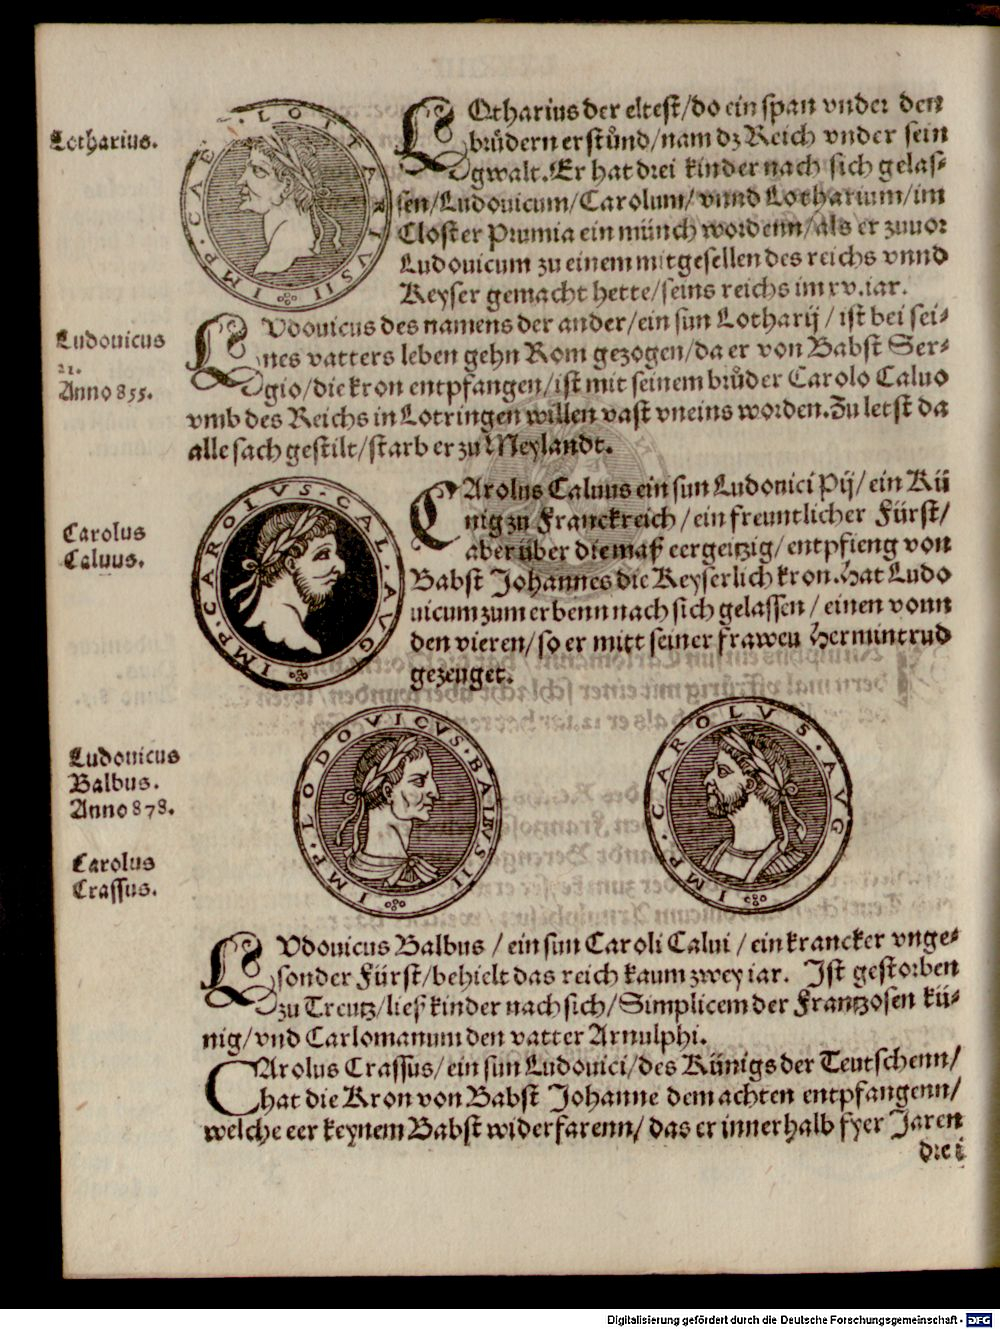 Lotharius.
IMP · CAE · LOTHARIVS II
LOtharius der eltest/do ein span vnder den
brůdern erstůnd/nam dz Reich vnder sein
gwalt. Er hat drei kinder nach sich gelas-
sen/Ludouicum/Carolum/vnnd Lotharium/im
Closter Prumia ein münch wordenn/als er zuuor
Ludouicum zu einem mitgesellen des reichs vnnd
Keyser gemacht hette/seins reichs im xv.iar.
Ludouicus
21.
Anno 855.
LVdouicus des namens der ander/ein sun Lotharij/ist bei sei-
nes vatters leben gehn Rom gezogen/da er von Babst Ser-
gio/die kron entpfangen/ist mit seinem brůder Carolo Caluo
vmb des Reichs in Lotringen willen vast vneins worden. Zu letst da
alle sach gestilt/starb er zu Meylandt.
Carolus
Caluus.
IMP · CAROLVS · CAL · AVG
CArolus Caluus ein sun Ludouici Pij/ein Kü
nig zu Franckreich/ein freuntlicher Fürst/
aber über die maß eergeitzig/entpfieng von
Babst Johannes die Keyserlich kron. Hat Ludo
uicum zum erbenn nach sich gelassen/einen vonn
den vieren/so er mitt seiner frawen Hermintrud
gezeuget.
Ludouicus
Balbus.
Anno 878.
Carolus
Crassus.
IMP · LODOVICVS · BALBVS II
IMP · CAROLVS · AVG
LVdouicus Balbus/ein sun Caroli Calui/ein krancker vnge-
sonder Fürst/behielt das reich kaum zwey iar. Ist gestorben
zu Treutz/ließ kinder nach sich/Simplicem der Frantzosen kü-
nig/vnd Carlomanum den vatter Arnulphi.
CArolus Crassus/ein sun Ludouici/des Künigs der Teutschenn/
hat die Kron von Babst Johanne dem achten entpfangenn/
welche eer keynem Babst widerfarenn/das er innerhalb fyer Jaren
drei
Digitalisierung gefördert durch die Deutsche Forschungsgemeinschaft - DFG